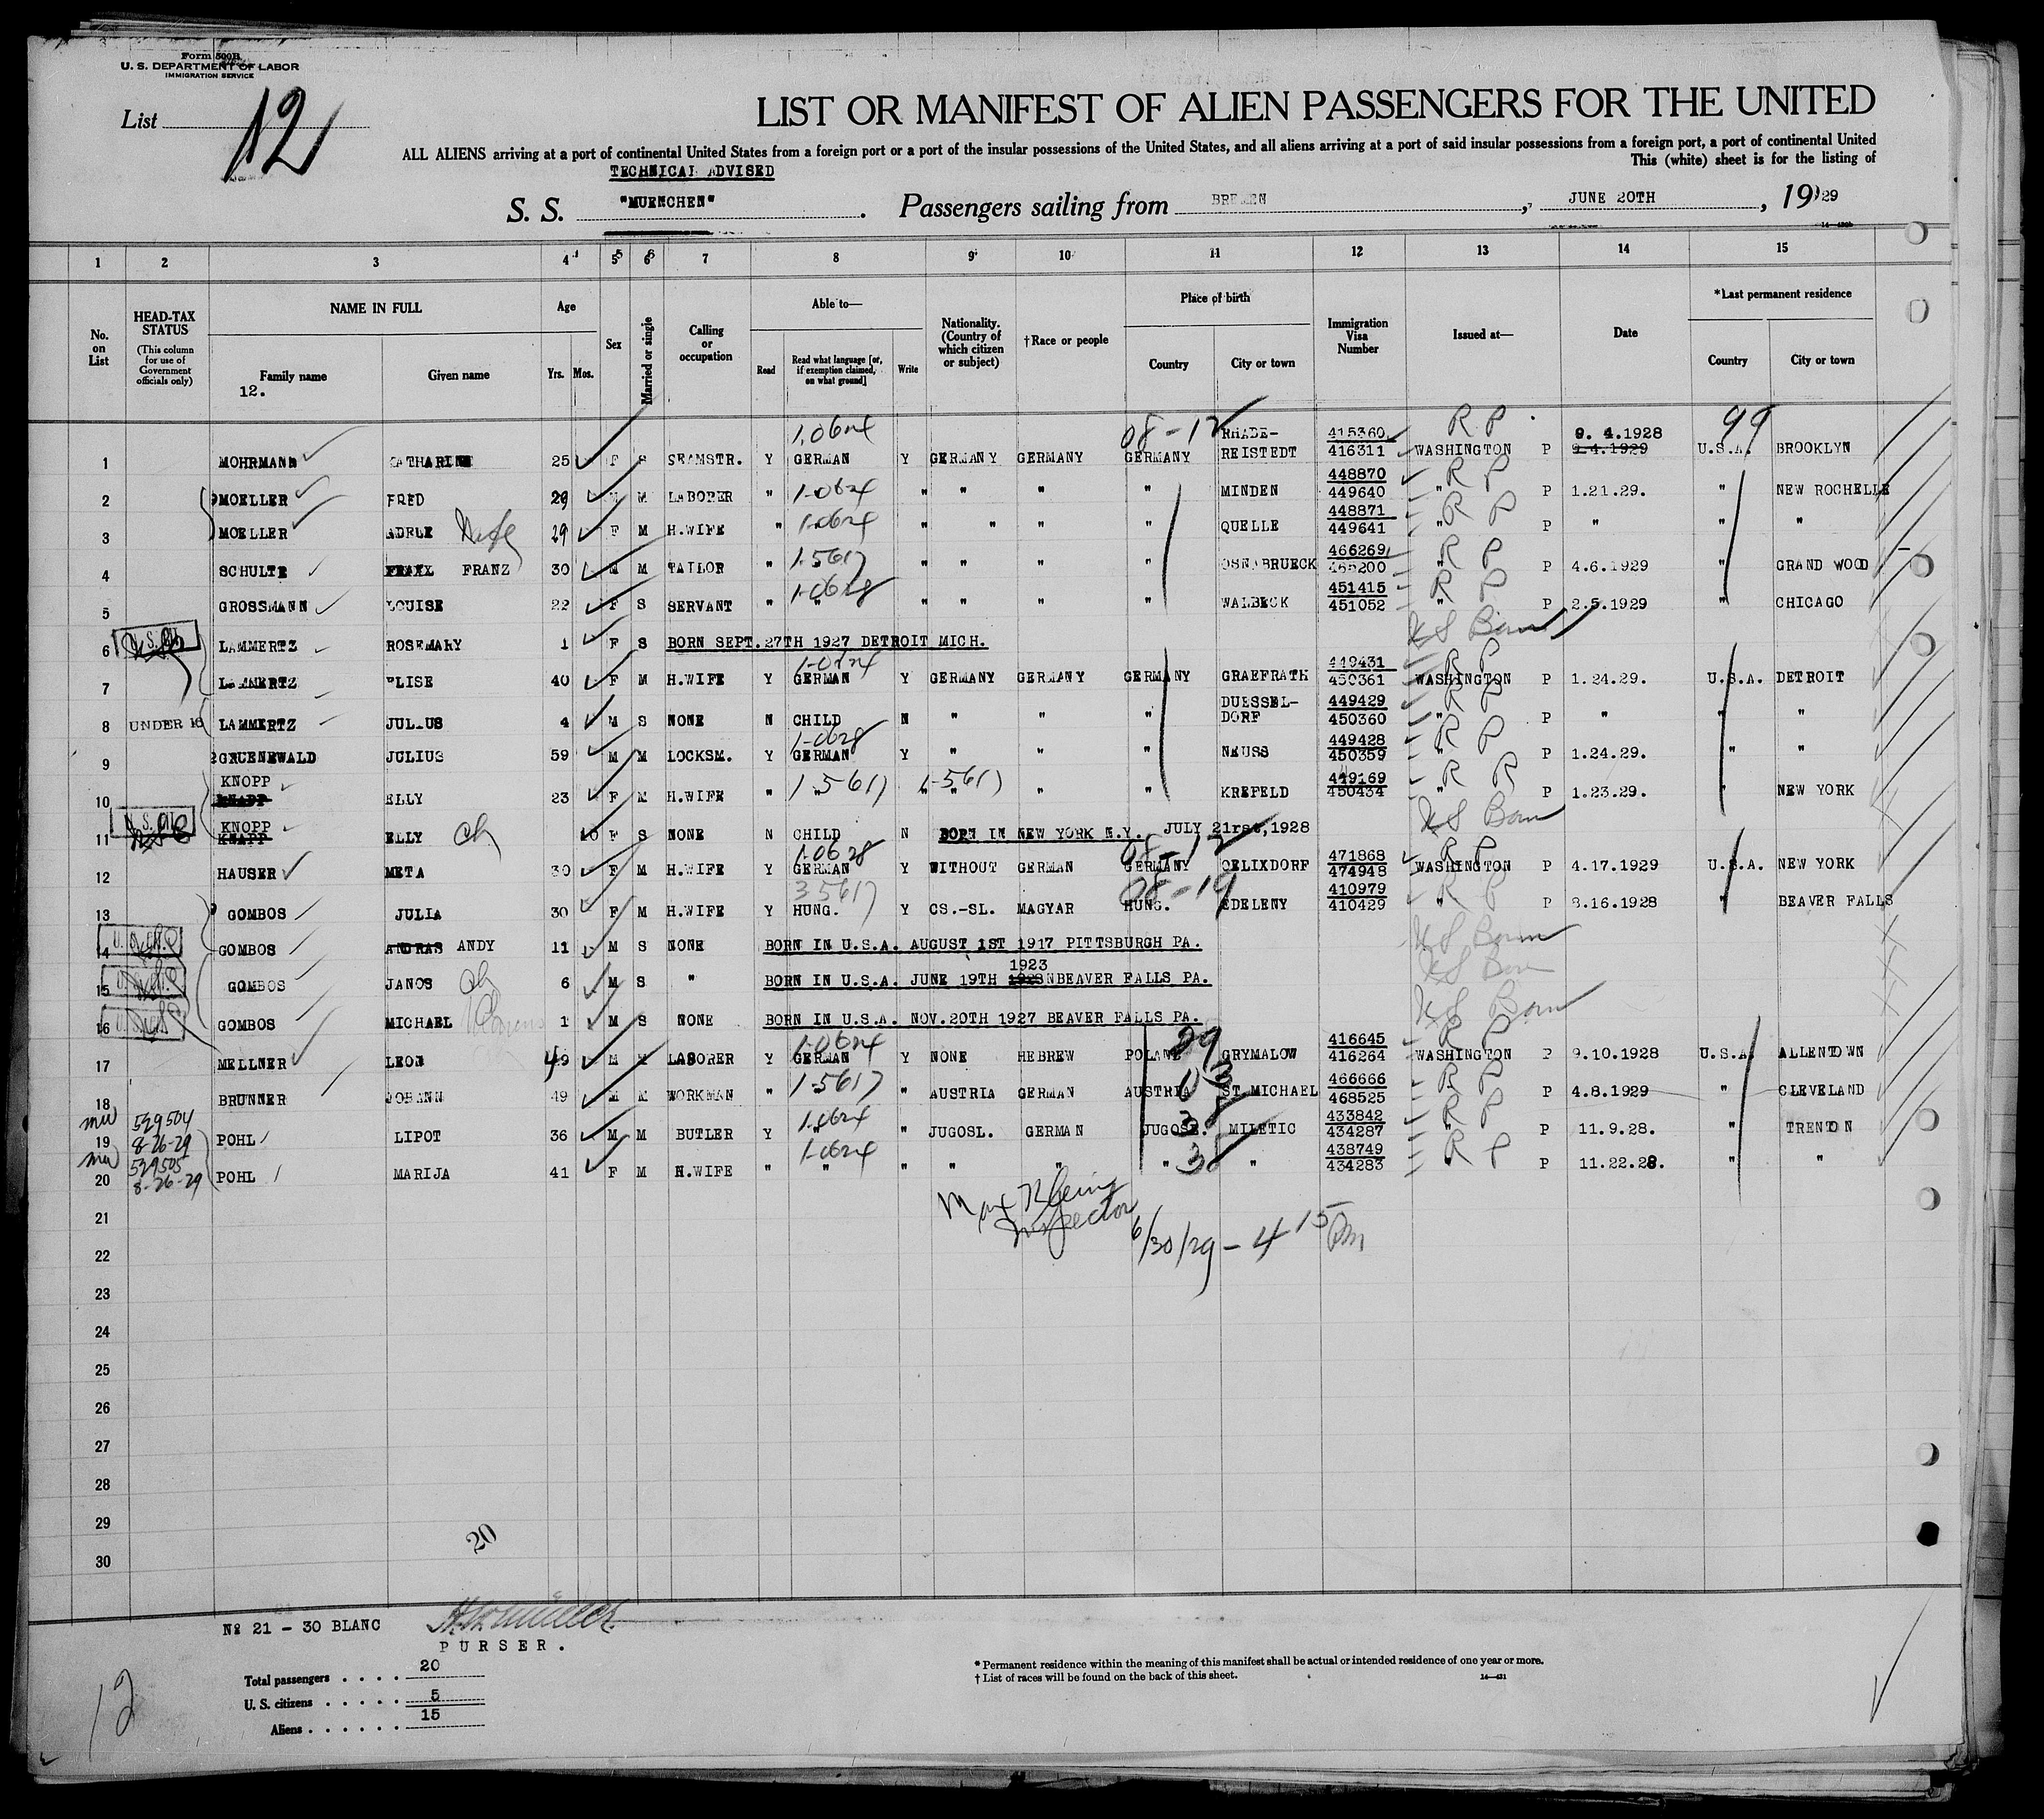 Form 500B
U. S. DEPARTMENT OF LABOR
IMMIGRATION SERVICE
List 12
LIST OR MANIFEST OF ALIEN PASSENGERS FOR THE UNITED
ALL ALIENS arriving at a port of continental United States from a foreign port or a port of the insular possessions of the United States, and all aliens arriving at a port of said insular possessions from a foreign port, a port of continental United
This (white) sheet is for the listing of
TECHNICAL ADVISED
S. S. "MUENCHEN". Passengers sailing from BREMEN, JUNE 20TH, 1929
1 2 3 4 5 6 7 8 9 10 11 12 13 14 15
No. on List
HEAD-TAX STATUS
(This column for use of Government officials only)
NAME IN FULL
Family name
Given name
12.
Age
Yrs. Mos.
Sex
Married or single
Calling or occupation
Able to—
Read
Read what language [or, if exemption claimed, on what ground]
Write
Nationality. (Country of which citizen or subject)
†Race or people
Place of birth
Country
City or town
Immigration Visa Number
Issued at—
Date
*Last permanent residence
Country
City or town
1-0624 08-12 RHADE- 415360 R P 9. 4.1928 99
1 MOHRMANN KATHARINE 25 F S SEAMSTR. Y GERMAN Y GERMANY GERMANY GERMANY REISTEDT 416311 WASHINGTON P 9.4.1929 U.S.A. BROOKLYN
448870 R P
2 MOELLER FRED 29 M M LABORER " 1-0624 " " " " MINDEN 449640 " P 1.21.29. " NEW ROCHELLE
448871 R P
3 MOELLER ADELE Wife 29 F M H.WIFE " 1-0624 " " " " QUELLE 449641 " P " " "
466269 R P
4 SCHULTE FRANZ 30 M M TAILOR " 1-5617 " " " " OSNABRUECK 465200 " P 4.6.1929 " GRAND WOOD
1-0628 451415 R P
5 GROSSMANN LOUISE 22 F S SERVANT " " " " " " WALBECK 451052 " P 2.5.1929 " CHICAGO
U S Born
6 LAMMERTZ ROSEMARY 1 F S BORN SEPT.27TH 1927 DETROIT MICH.
1-0624 449431 R P
7 LAMMERTZ ELISE 40 F M H.WIFE Y GERMAN Y GERMANY GERMANY GERMANY GRAEFRATH 450361 WASHINGTON P 1.24.29. U.S.A. DETROIT
DUESSEL- 449429 R P
8 UNDER 16 LAMMERTZ JULIUS 4 M S NONE N CHILD N " " " DORF 450360 " P " " "
1-0628 449428 R P
9 GRUENEWALD JULIUS 59 M M LOCKSM. Y GERMAN Y " " " NEUSS 450359 " P 1.24.29. " "
KNOPP 449169 R R
10 KNAPP ELLY 23 F M H.WIFE " 1-5617 " 1-5617 " " " KREFELD 450434 " P 1.23.29. " NEW YORK
KNOPP U S Born
11 KNAPP ELLY Ch 10 F S NONE N CHILD N BORN IN NEW YORK N.Y. JULY 21rst,1928
1-0628 08-12 471868 R P
12 HAUSER META 30 F M H.WIFE Y GERMAN Y WITHOUT GERMAN GERMANY OELIXDORF 474948 WASHINGTON P 4.17.1929 U.S.A. NEW YORK
35617 08-19 410979 R P
13 GOMBOS JULIA 30 F M H.WIFE Y HUNG. Y CS.-SL. MAGYAR HUNG. EDELENY 410429 " P 8.16.1928 " BEAVER FALLS
14 GOMBOS ANDRAS ANDY 11 M S NONE BORN IN U.S.A. AUGUST 1ST 1917 PITTSBURGH PA. U S Born
1923
15 GOMBOS JANOS Ch 6 M S " BORN IN U.S.A. JUNE 19TH 1928NBEAVER FALLS PA. U S Born
16 GOMBOS MICHAEL 1 M S NONE BORN IN U.S.A. NOV.20TH 1927 BEAVER FALLS PA. U S Born
1-0624 29 416645 R P
17 MELLNER LEON 49 M M LABORER Y GERMAN Y NONE HEBREW POLAND GRYMALOW 416264 WASHINGTON P 9.10.1928 U.S.A. ALLENTOWN
1-5617 466666 R P
18 BRUNNER JOHANN 49 M M WORKMAN " " AUSTRIA GERMAN AUSTRIA ST.MICHAEL 468525 P 4.8.1929 " CLEVELAND
529504 1-0624 433842 R P
19 8-26-29 POHL LIPOT 36 M M BUTLER Y " " JUGOSL. GERMAN JUGOSL. MILETIC 434287 " P 11.9.28. " TRENTON
529505 1-0624 38 438749 R P
20 8-26-29 POHL MARIJA 41 F M H.WIFE " " " " " " " 434283 " P 11.22.28. " "
21
Max Klein
Inspector
6/30/29 - 4 15 Pm
22
23
24
25
26
27
28
29
20
30
No 21 - 30 BLANC
PURSER.
Total passengers . . . . 20
U. S. citizens . . . . . 5
Aliens . . . . . . 15
12
* Permanent residence within the meaning of this manifest shall be actual or intended residence of one year or more.
† List of races will be found on the back of this sheet.